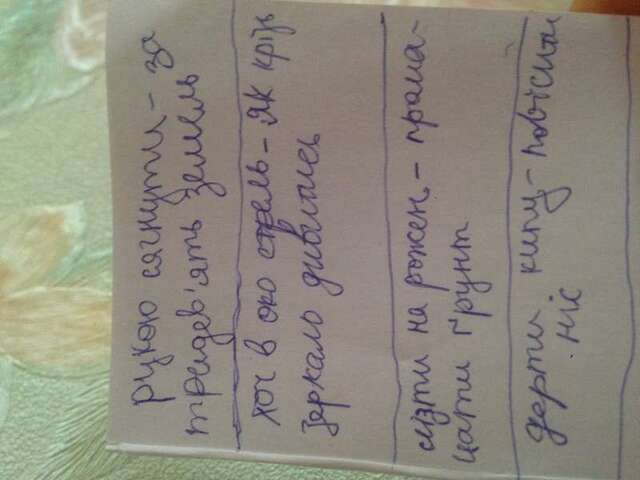 Рукою сягнути - за
тридев'ять земель
хоч в око стрель - як крізь
зеркало дивились
лізти на рожен - прома-
цати ґрунт
дерти кипу - повісили
ніс